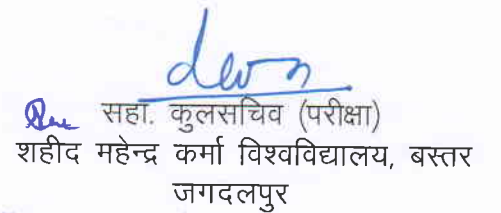 सहा. कुलसचिव (परीक्षा)
शहीद महेन्द्र कर्मा विश्वविद्यालय, बस्तर
जगदलपुर